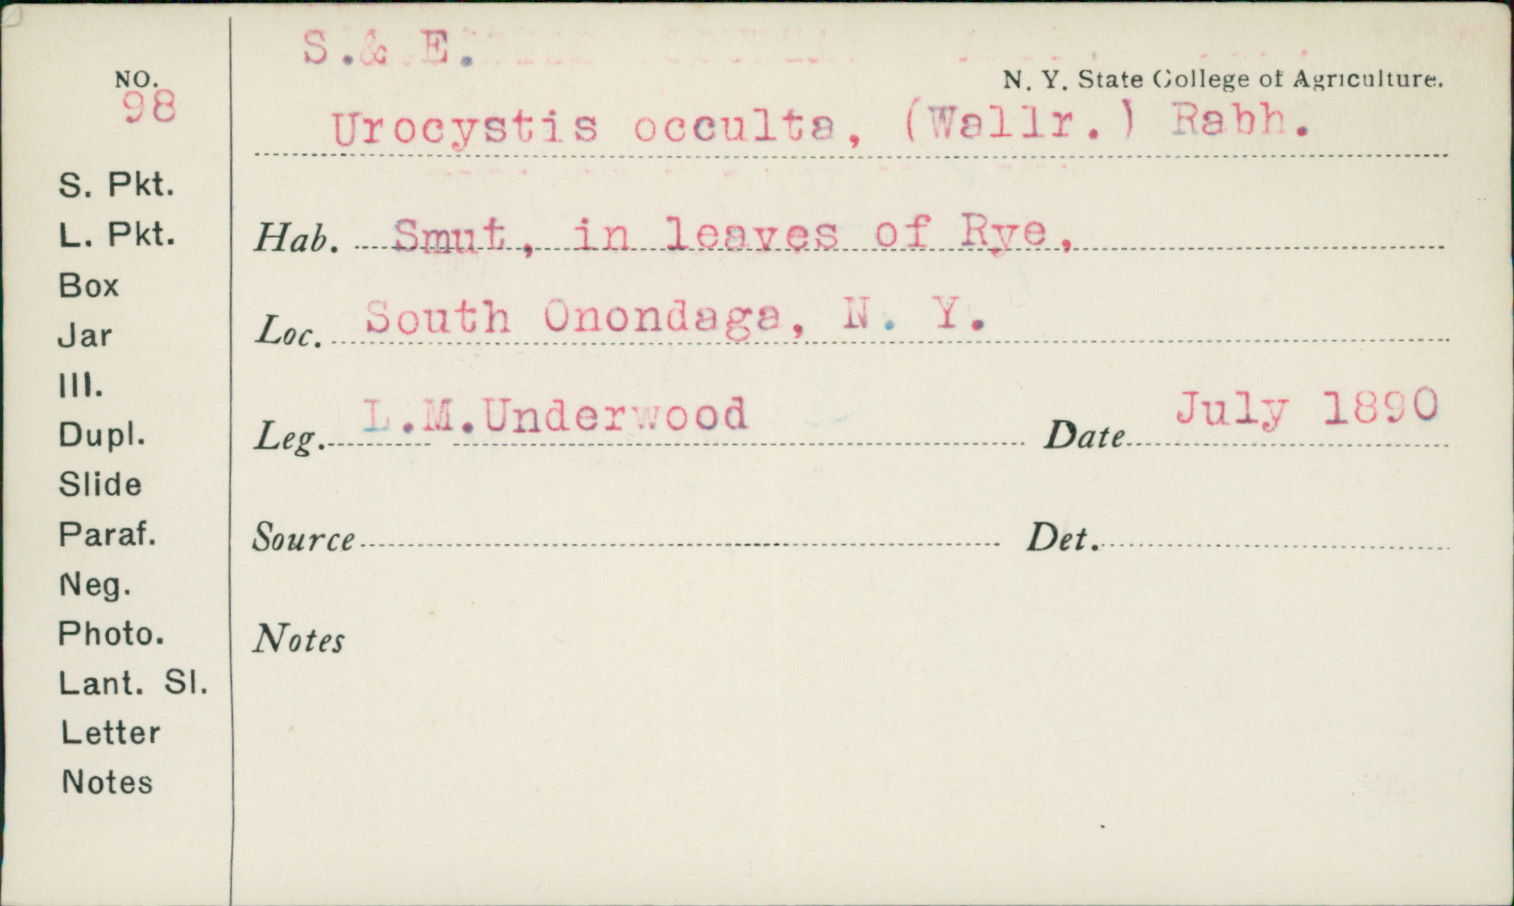 S.& E.
NO.
N. Y. State College of Agriculture.
98
Urocystis occulta, (Wallr.) Rabh.
S. Pkt.
L. Pkt.
Hab. Smut, in leaves of Rye,
Box
Jar
Loc. South Onondaga, N. Y.
Ill.
Dupl.
Leg. L.M.Underwood Date July 1890
Slide
Paraf.
Source Det.
Neg.
Photo.
Notes
Lant. Sl.
Letter
Notes